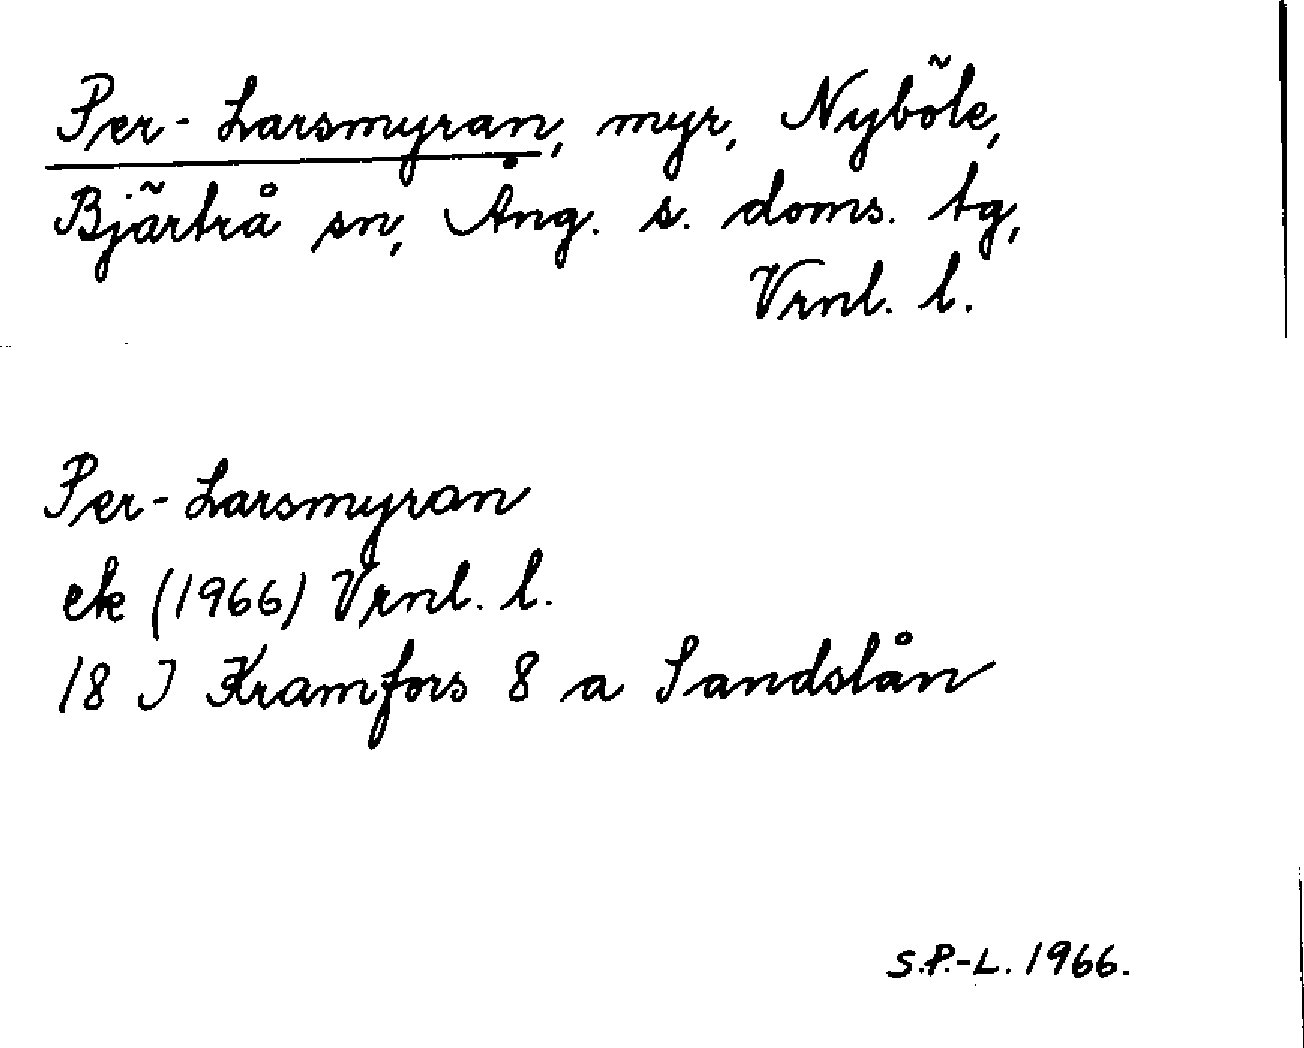 Per-Larsmyran, myr, Nyböle,
Bjärtrå sn, Ång. s. doms. tg,
Vrnl. l.
Per-Larsmyran
ek (1966) Vrnl. l.
18 I Kramfors 8 a Sandslån
S.P.-L. 1966.